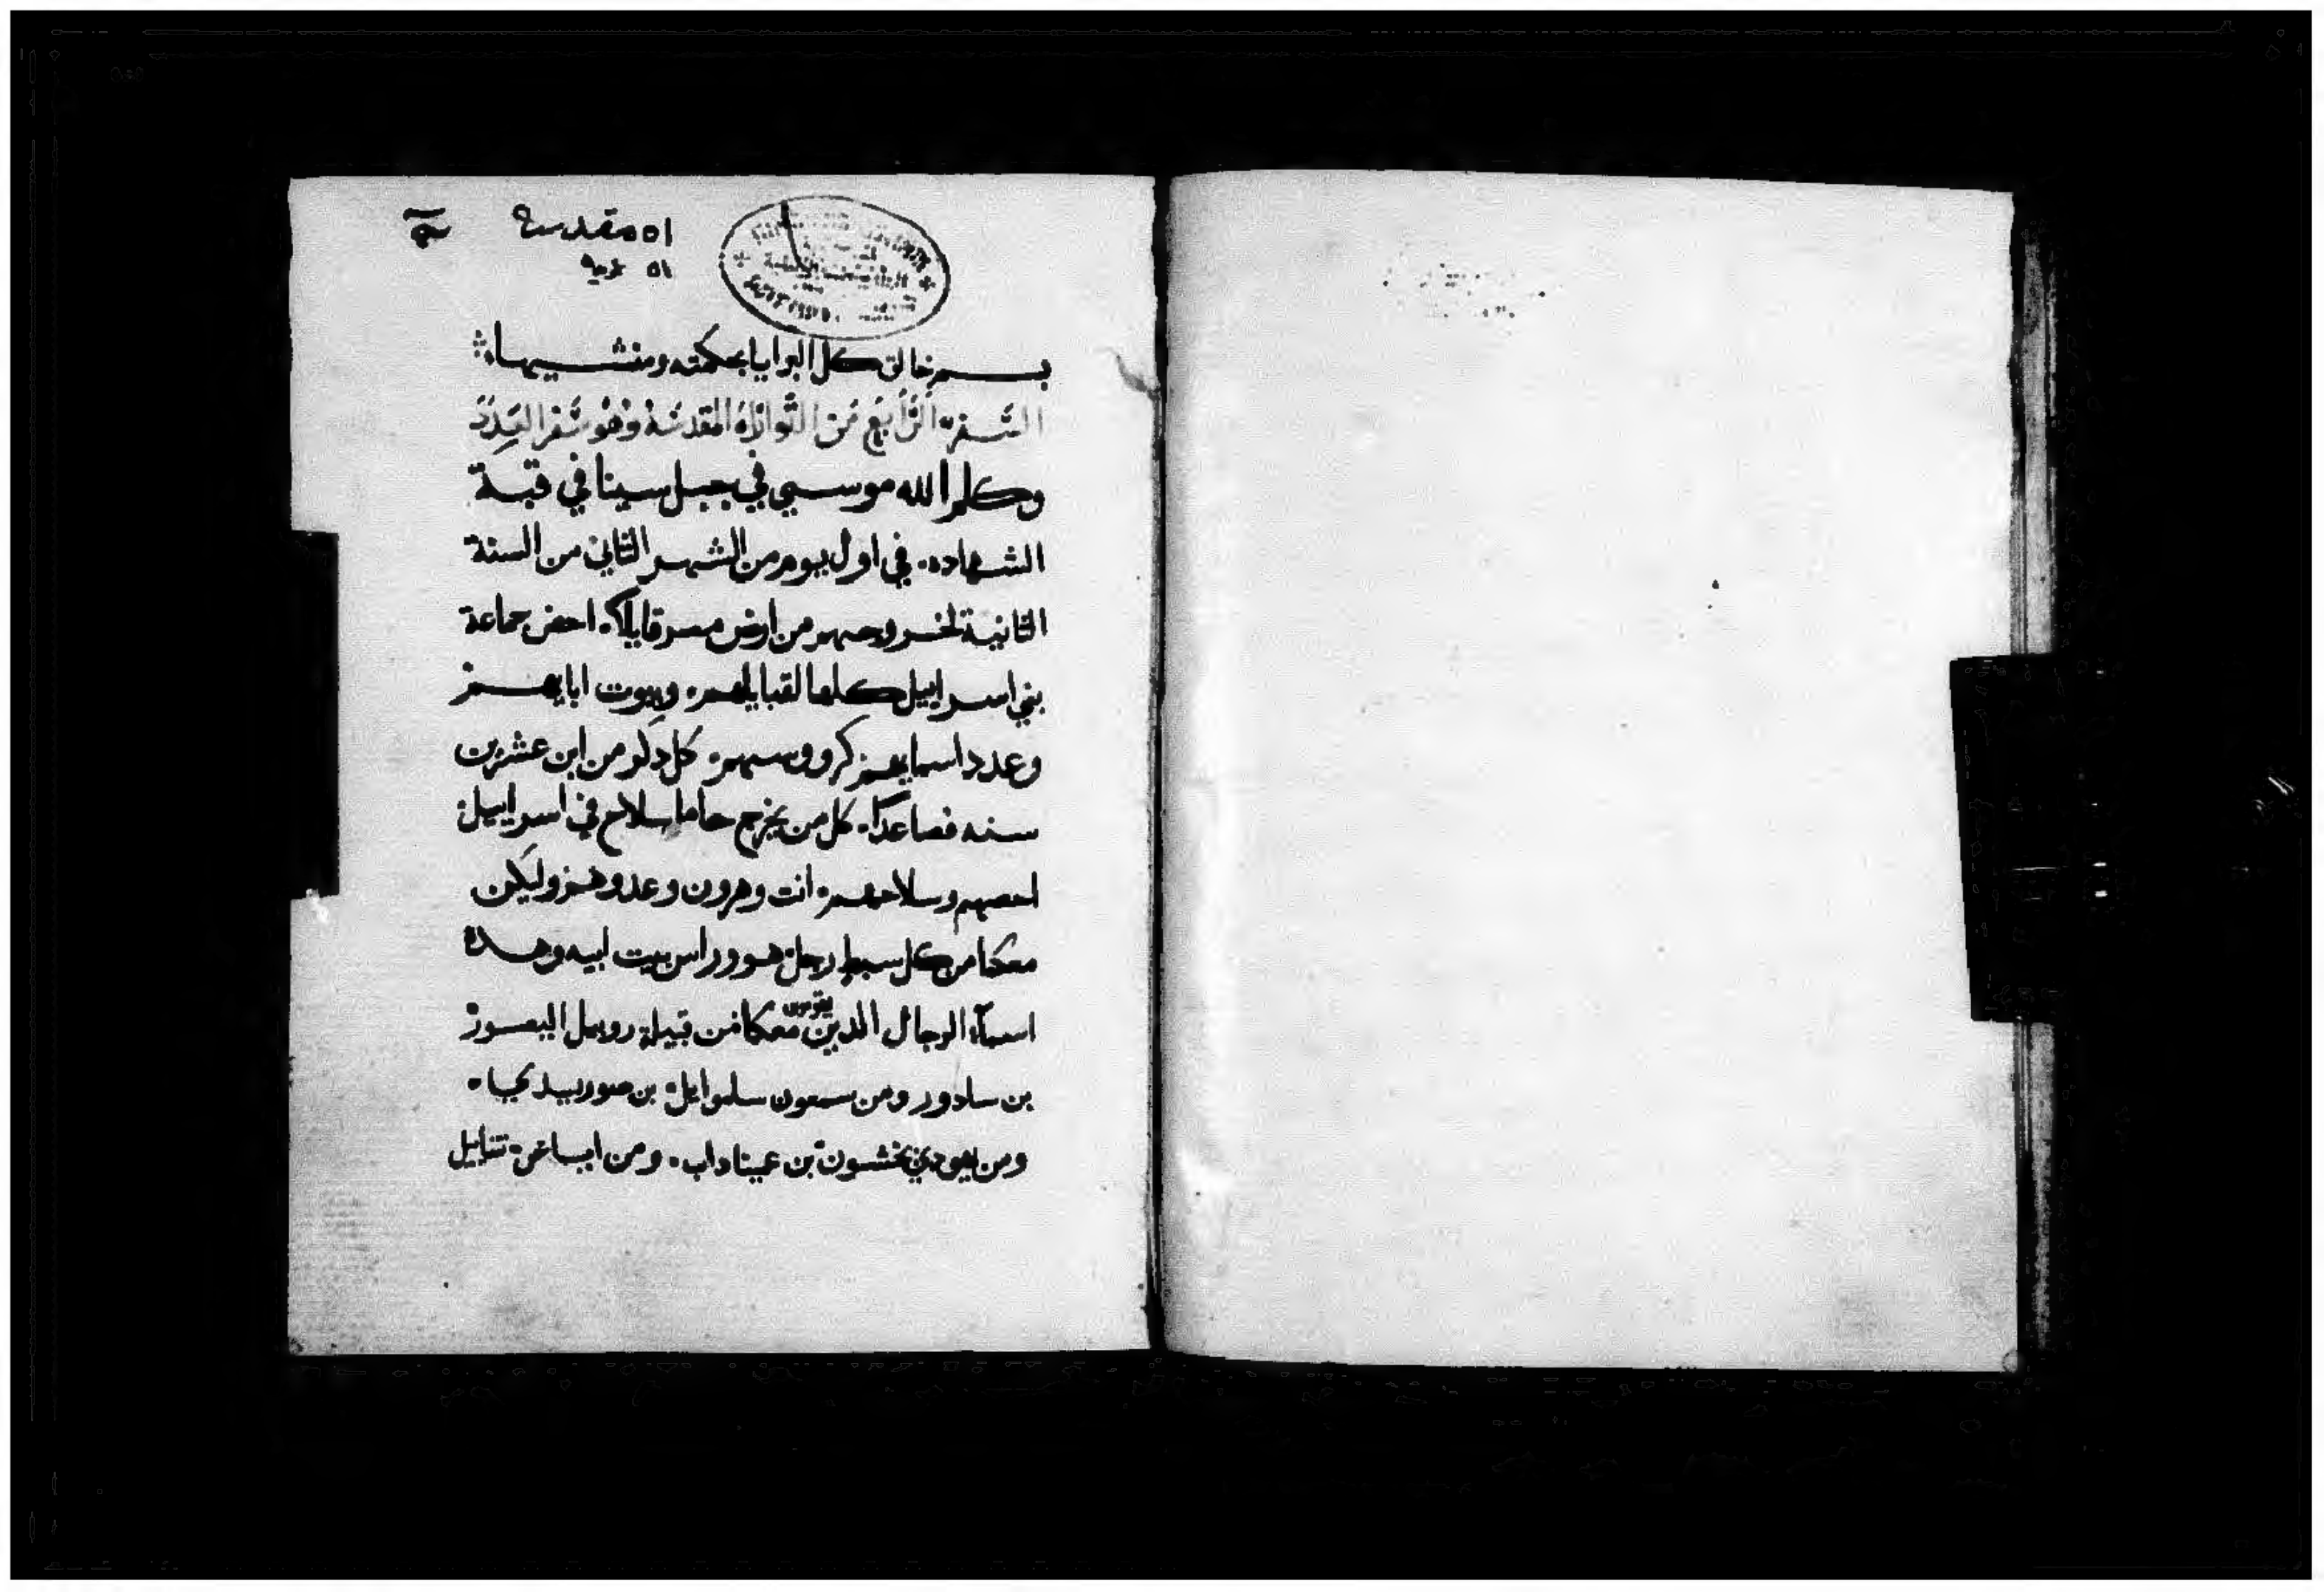 ٥١ مقدسة
٥١
بسم خالق كل البرايا بحكمته ومنشيها
السفر الرابع من التوراة المقدسة وهو سفر العدد
وكلم الله موسي في جبل سينا في قبة
الشهاده. في اول يوم من الشهر الثاني من السنة
الثانية لخروجهم من ارض مصر قايلا. احصِ جماعة
بني اسراييل كلها لقبايلهم. وبيوت ابايهم
وعدد اسمايهم كرووسهم. كل دكر من ابن عشرين
سنه فصاعدًا. كل من يخرج حاملا سلاح في اسراييل
احصهم وسلاحهم. انت وهرون وعدوهم وليكن
معكما من كل سبط رجل هو وراس بيت ابيه وهده
اسمآء الرجال الدين يقومون معكما من قبيلة روبيل اليصور
بن سادور ومن سمعون سلموايل بن صوريبيدكيا.
ومن يهودي نحشون بن عيناداب. ومن ايساخر. تنايل